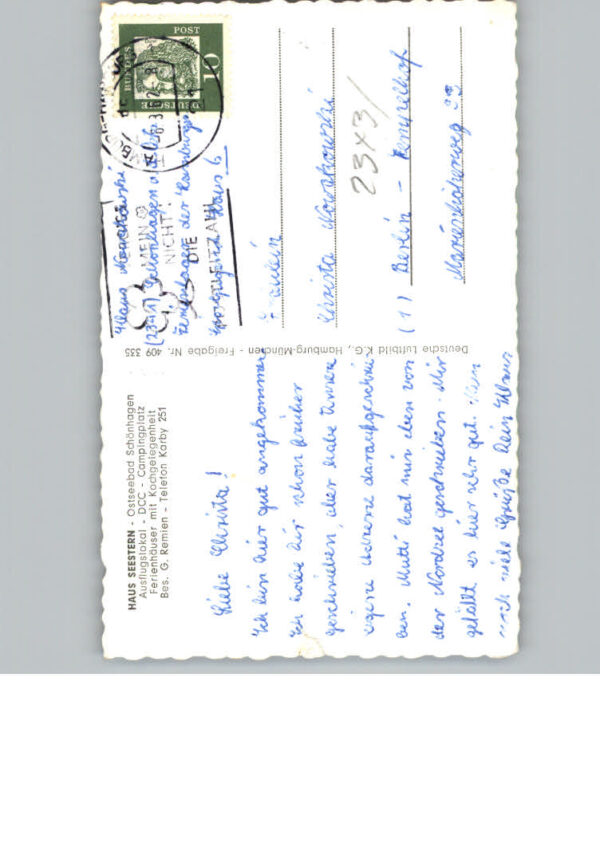 HAUS SEESTERN - Ostseebad Schönhagen
Ausflugslokal - DCC - Campingplatz
Ferienhäuser mit Kochgelegenheit
Bes. G. Remien - Telefon Karby 251
Liebe Christa!
Ich bin hier gut angekommen
Ich habe dir schon früher
geschrieben, aber habe Unsere
eigene Adresse daraufgeschrie
ben. Mutti hat mir eben von
der Nordsee geschrieben. Mir
gefällt es hier sehr gut.
noch viele Grüße dein Klaus
Deutsche Luftbild K.G., Hamburg-München - Freigabe Nr. 409 335
Klaus Nowakowski
(23411) Schönhagen
der Hamburger
Haus 6
DEUTSCHE BUNDESPOST
10
MEIN
NICHT:
DIE
POSTLEITZAHL
Fräulein
Christa Nowakowski
23x3/
(1) Berlin - Tempelhof